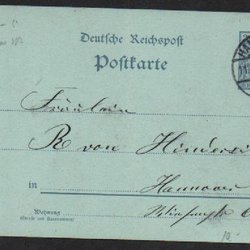 Deutsche Reichspost
Postkarte
Fräulein
R von Hindersi
in Hannover
Wohnung
(Straße und Hausnummer)